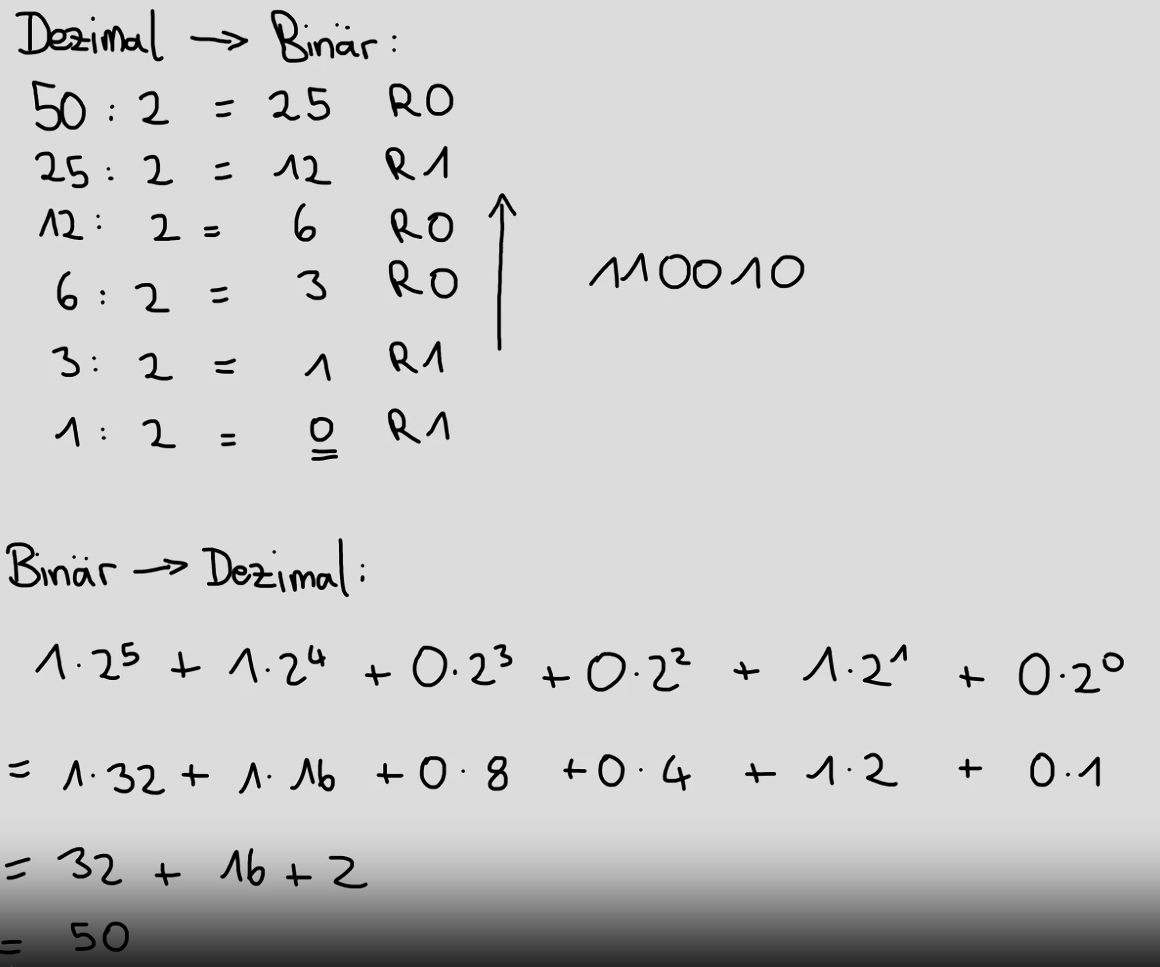 Dezimal → Binär:
50 : 2 = 25 R0
25 : 2 = 12 R1
12 : 2 = 6 R0
6 : 2 = 3 R0
3 : 2 = 1 R1
1 : 2 = 0 R1
110010
Binär → Dezimal:
1·2⁵ + 1·2⁴ + 0·2³ + 0·2² + 1·2¹ + 0·2⁰
= 1·32 + 1·16 + 0·8 + 0·4 + 1·2 + 0·1
= 32 + 16 + 2
= 50